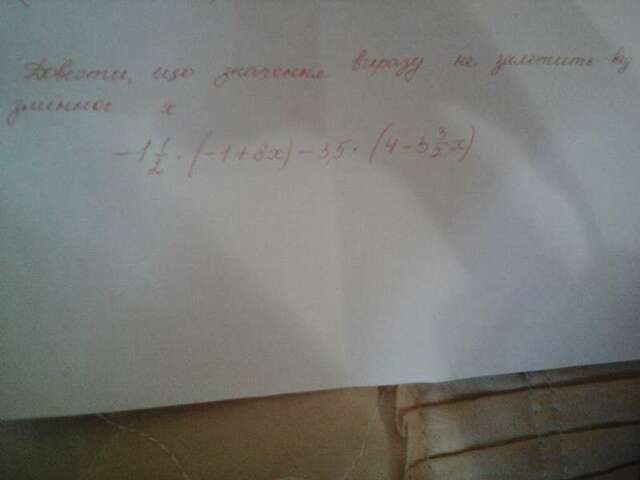 Довести, що значення виразу не залежить від
змінної х
-1 1/2 · (-1+8х) - 3,5 · (4 - 3 3/7 х)